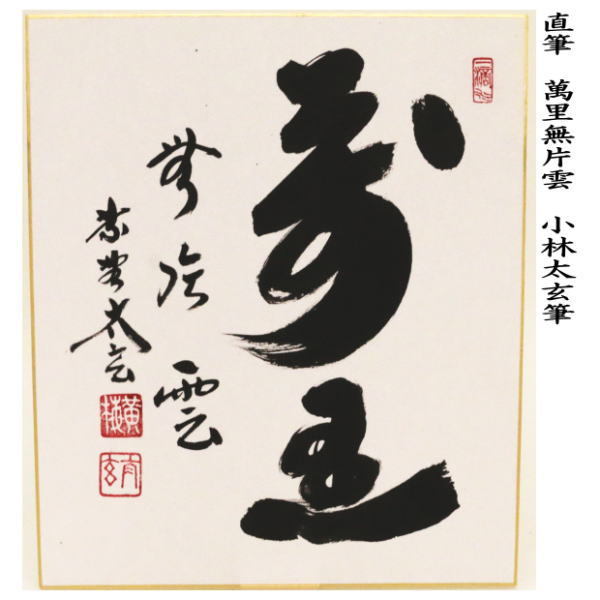 直筆　萬里無片雲　小林太玄筆
萬里
無片雲
紫野太玄
黄梅
太玄